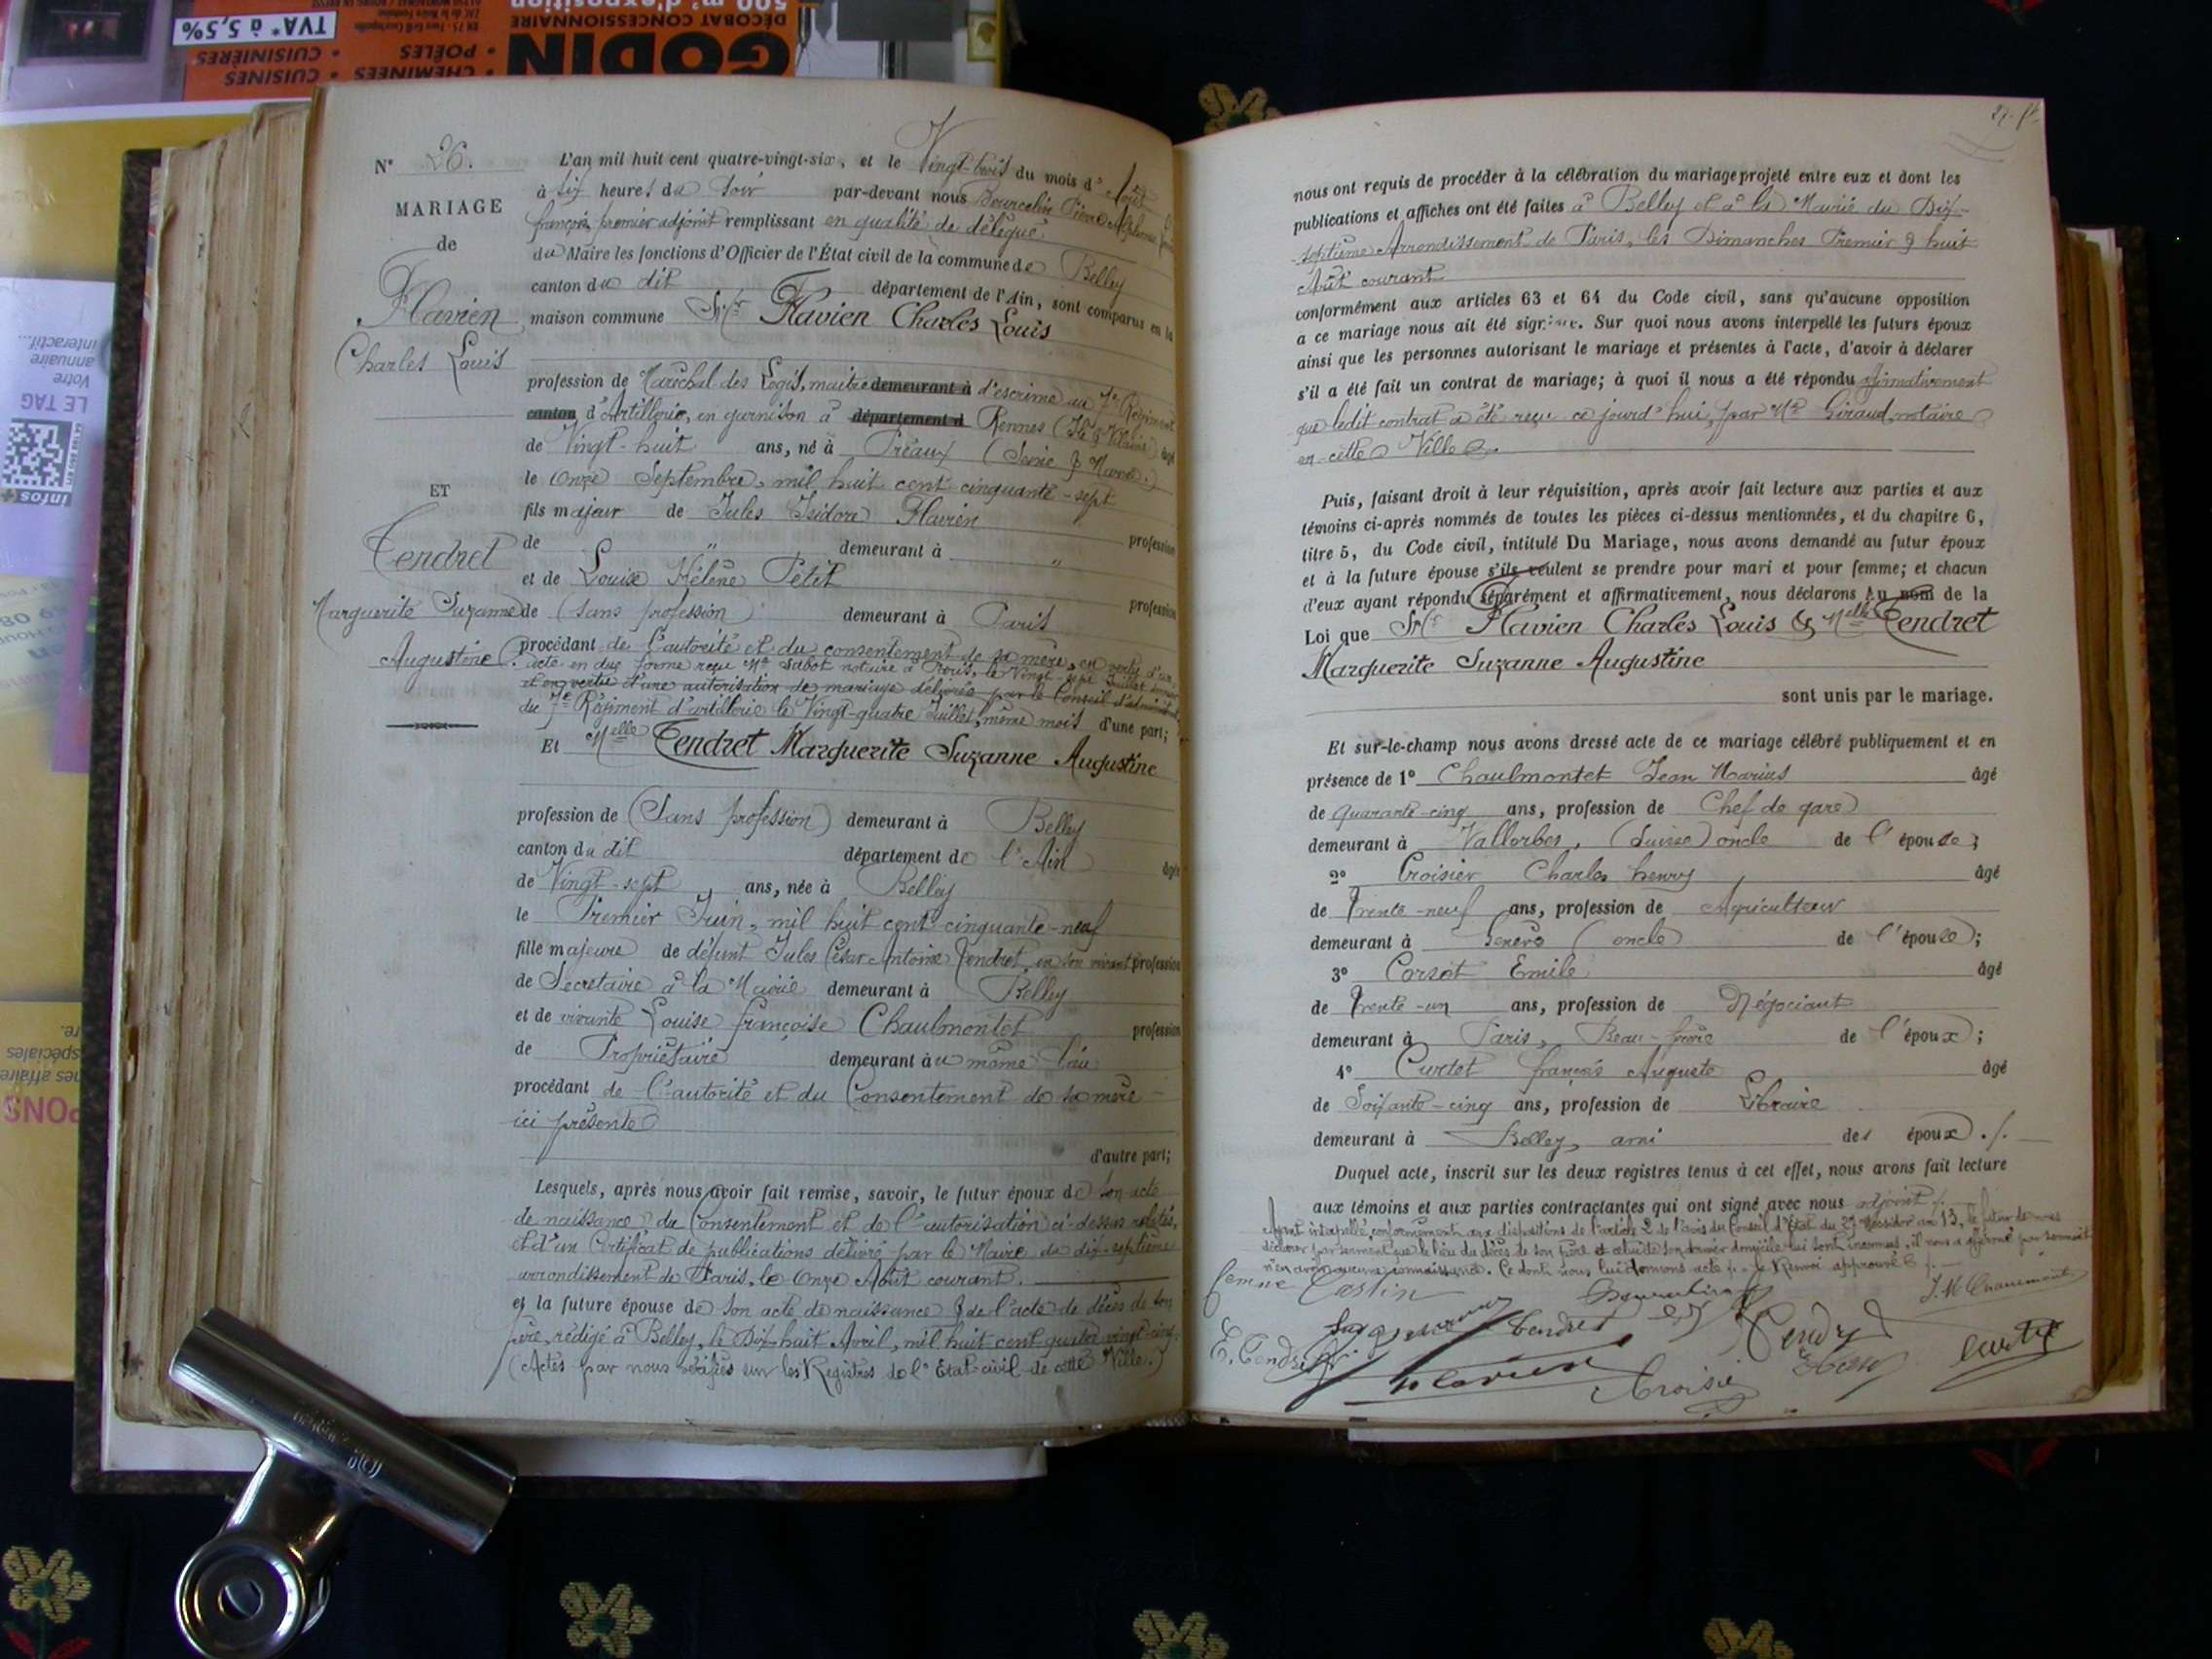 GODIN
DÉCOBAT CONCESSIONNAIRE
500 m² d'exposition
• CHEMINÉES • CUISINES
• POÊLES • CUISINIÈRES
TVA* à 5,5%
Votre
annuaire
interactif...
LE TAG
infos+
N° 26.
MARIAGE
de
Flavien
Charles Louis
ET
Tendret
Marguerite Suzanne
Augustine
L'an mil huit cent quatre-vingt-six, et le Vingt-trois du mois d'Août
à six heures du Soir par-devant nous Bourcelin Pierre Alphonse
françois, premier adjoint remplissant en qualité de délégué
du Maire les fonctions d'Officier de l'État civil de la commune de Belley
canton du dit département de l'Ain, sont comparus en la
maison commune Sr Flavien Charles Louis
profession de Maréchal des Logis, maitre demeurant à d'escrime au 7e Régiment
canton d'Artillerie, en garnison à département d Rennes (Ile & Vilaine) âgé
de Vingt-huit ans, né à Préaux (Seine & Marne.)
le Onze Septembre, mil huit cent cinquante-sept
fils majeur de Jules Isidore Flavien
de " demeurant à " profession
et de Louise Hélène Petit
de (sans profession) demeurant à Paris profession
procédant de l'autorité et du consentement de sa mère, en vertu d'un
acte en due forme reçu Me Sabot notaire à Paris, le Vingt-sept Juillet dernier
et en vertu d'une autorisation de mariage délivrée par le Conseil d'administration
du 7e Régiment d'artillerie le Vingt-quatre Juillet, même mois d'une part;
Et Melle Tendret Marguerite Suzanne Augustine
profession de (Sans profession) demeurant à Belley
canton du dit département de l'Ain âgée
de Vingt-sept ans, née à Belley
le Premier Juin, mil huit cent cinquante-neuf
fille majeure de défunt Jules César Antoine Tendret, en son vivant profession
de Secrétaire à la Mairie demeurant à Belley
et de vivante Louise françoise Chaulmontet profession
de Propriétaire demeurant au même lieu
procédant de l'autorité et du Consentement de sa mère
ici présente
d'autre part;
Lesquels, après nous avoir fait remise, savoir, le futur époux de son acte
de naissance, du Consentement et de l'autorisation ci-dessus relatés,
et d'un Certificat de publications délivré par le Maire du dix-septième
arrondissement de Paris, le Onze Août courant.
et la future épouse de son acte de naissance & de l'acte de décès de son
père, rédigé à Belley, le Dix huit Avril, mil huit cent quatre vingt cinq
(Actes par nous vérifiés sur les Registres de l'Etat-civil de cette Ville.)
nous ont requis de procéder à la célébration du mariage projeté entre eux et dont les
publications et affiches ont été faites à Belley et à la Mairie du Dix-
septième Arrondissement de Paris, les Dimanches Premier & huit
Août courant
conformément aux articles 63 et 64 du Code civil, sans qu'aucune opposition
a ce mariage nous ait été signifiée. Sur quoi nous avons interpellé les futurs époux
ainsi que les personnes autorisant le mariage et présentes à l'acte, d'avoir à déclarer
s'il a été fait un contrat de mariage; à quoi il nous a été répondu affirmativement
que ledit contrat a été reçu ce jourd'hui, par Me Giraud, notaire
en cette Ville
Puis, faisant droit à leur réquisition, après avoir fait lecture aux parties et aux
témoins ci-après nommés de toutes les pièces ci-dessus mentionnées, et du chapitre 6,
titre 5, du Code civil, intitulé Du Mariage, nous avons demandé au futur époux
et à la future épouse s'ils veulent se prendre pour mari et pour femme; et chacun
d'eux ayant répondu séparément et affirmativement, nous déclarons Au nom de la
Loi que Sr Flavien Charles Louis & Melle Tendret
Marguerite Suzanne Augustine
sont unis par le mariage.
Et sur-le-champ nous avons dressé acte de ce mariage célébré publiquement et en
présence de 1° Chaulmontet Jean Marius âgé
de quarante-cinq ans, profession de Chef de gare
demeurant à Vallorbes, (Suisse) oncle de l'épouse;
2° Croisier Charles henry âgé
de trente-neuf ans, profession de Agriculteur
demeurant à (oncle) de l'épouse;
3° Corsat Emile âgé
de trente-un ans, profession de Négociant
demeurant à Paris, Beau-frère de l'époux;
4° Curtet françois Auguste âgé
de Soixante-cinq ans, profession de Libraire
demeurant à Belley, ami des époux ./.
Duquel acte, inscrit sur les deux registres tenus à cet effet, nous avons fait lecture
aux témoins et aux parties contractantes qui ont signé avec nous adjoint /.
Ayant interpellé, conformément aux dispositions de l'article 2 de l'avis du Conseil d'État du 27 Messidor an 13, le futur de nous
déclarer par serment que le lieu du décès de son père et celui de son dernier domicile lui sont inconnus, il nous a affirmé par serment
n'en avoir aucune connaissance. Ce dont nous lui donnons acte /. le Renvoi approuvé
femme Castin
E. Tendret
Tendret
Flavien
Croisier
Curtet